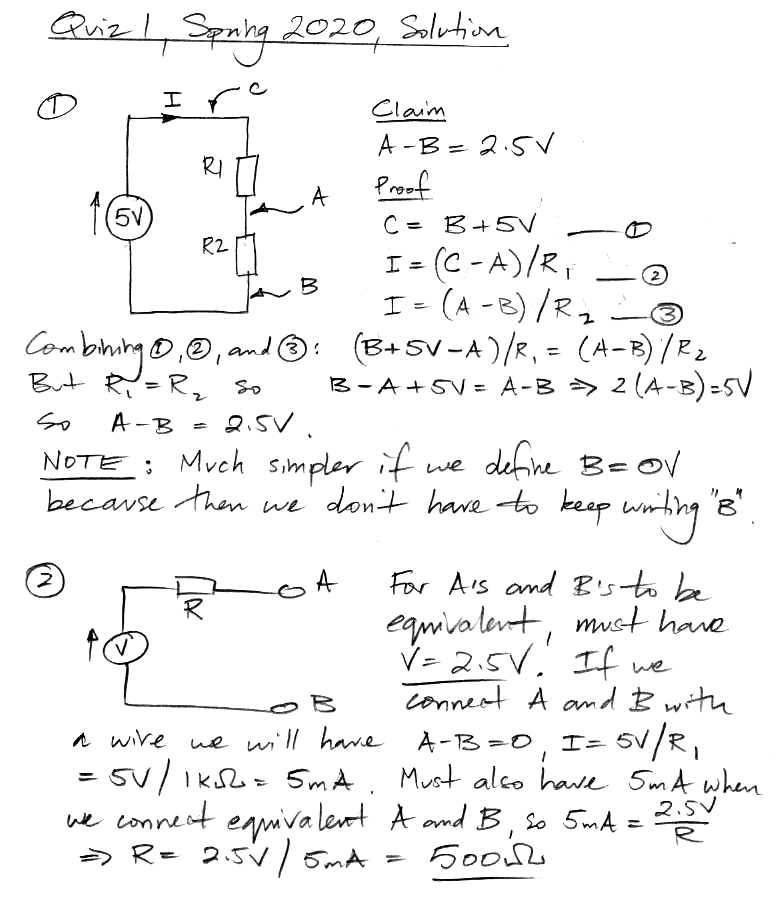 Quiz 1, Spring 2020, Solution
①
I
C
R1
A
5V
R2
B
Claim
A - B = 2.5V
Proof
C = B + 5V — ①
I = (C - A)/R₁ — ②
I = (A - B)/R₂ — ③
Combining ①, ②, and ③: (B+5V-A)/R₁ = (A-B)/R₂
But R₁ = R₂ so B - A + 5V = A - B ⇒ 2(A-B)=5V
So A-B = 2.5V.
NOTE: Much simpler if we define B = 0V
because then we don't have to keep writing "B".
②
A
R
V
B
For A's and B's to be
equivalent, must have
V = 2.5V. If we
connect A and B with
a wire we will have A-B=0, I = 5V/R₁
= 5V/1kΩ = 5mA. Must also have 5mA when
we connect equivalent A and B, so 5mA = 2.5V/R
⇒ R = 2.5V/5mA = 500Ω